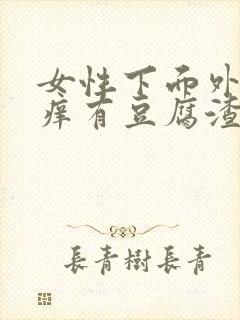 女性下面外
痒有豆腐渣
長青樹長青